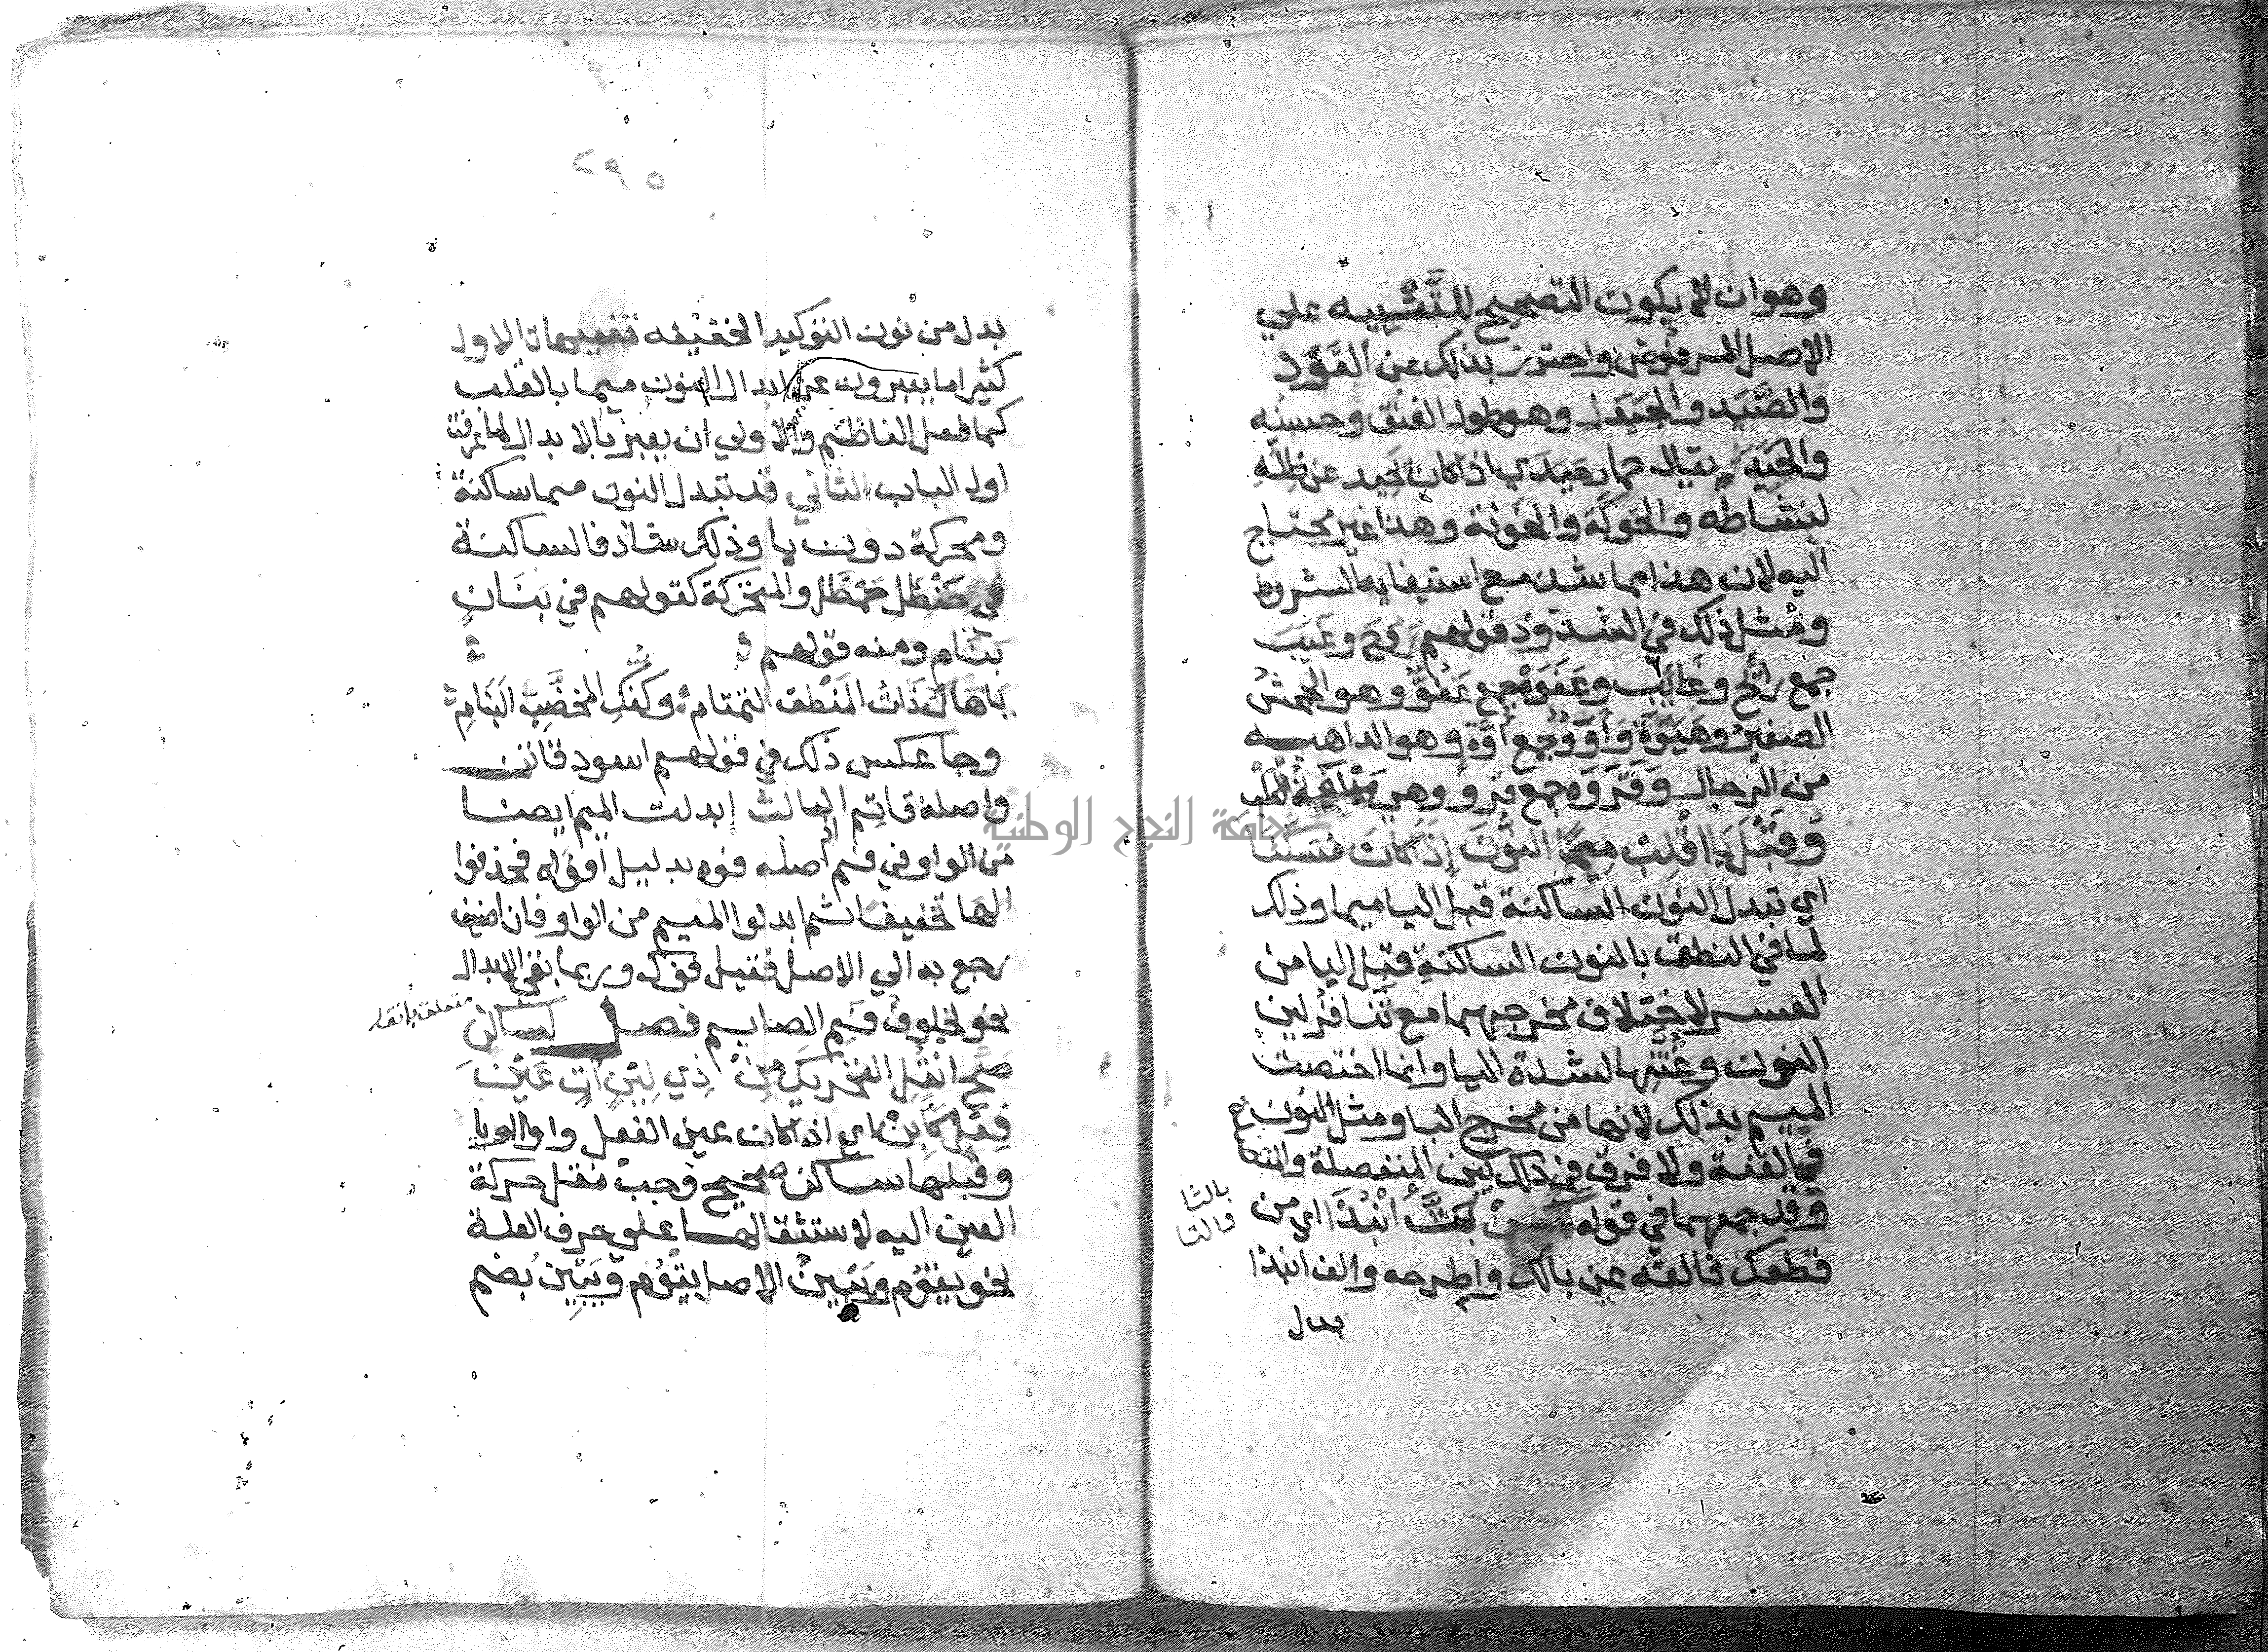 وهو ان لا يكون التصحيح للتنبيه علي
الاصل المرفوض واحترز بذلك عن القَوَد
والصَّيَد والجَيَد وهو طول العنق وحسنه
والحَيَد يقال حمار حَيَدَي اذا كان يحيد عن ظله
لنشاطه والحَوَكَة والخَوَنة وهذا غير محتاج
اليه لان هذا مما شذ مع استيفايه الشروط
ومثل ذلك في الشذوذ قولهم رَوَح وغَيَب
جمع رائح وغائب وعَفَوَة جمع عَفْو وهو الجحش
الصغير وهَيَوَة وأَوَو جمع أَوَّة وهو الداهيه
من الرجال وقَرَوَة جمع قرو وهي ميلغة الكلب
وَقَبْلَ بَا اقْلِبْ مِيمًا النُّونَ إِذَا كَانَ مُسَكَّنًا
اي تبدل النون الساكنة قبل البا ميما وذلك
لما في النطق بالنون الساكنة قبل البا من
العسر لاختلاف مخرجيهما مع تنافر لين
النون وغنتها لشدة البا وانما اختصت
الميم بذلك لانها من مخرج البا ومثل النون
في الغنة ولا فرق في ذلك بين المنفصلة والمتصلة
وقد جمعهما في قوله كمن بَتَّ انْبُذَا اي من
بالتا
فالتا
قطعك فالقه عن بالك واطرحه والف انبذا
بدل
٢٩٥
بدل من نون التوكيد الخفيفه تنبيهات الاول
كثيرا ما يعبرون عن ابدال النون ميما بالقلب
كما فعل الناظم والاولي ان يعبر بالابدال لما عرفت
اول الباب الثاني قد تبدل النون ميما ساكنة
ومحركة دون با وذلك شاذ فالساكنة
في حَنْظَل حَمْظَل والمتحركة كقولهم في بَنَانٍ
بَنَام ومنه قولهم
يا هال ذات المنطق التمتام وكفك المخضب البنام
وجا عكس ذلك في قولهم اسود قاتن
واصله قاتم الثالث ابدلت الميم ايضا
من الواو في فم اصله فوه بدليل افواه فحذفوا
الها تخفيفا ثم ابدلوا الميم من الواو فان اضيف
رجع به الي الاصل فقيل فوك وربما بقي الابدال
نحو لخلوف فم الصايم فصل لساكن
متعلق بانقل
صَحَّ انْقُلِ التحريكَ مِنْ ذِي لِينٍ آتٍ عَيْنَ
فِعْلٍ كَأَبِنْ اي اذا كان عين الفعل واوا او يا
وقبلها ساكن صحيح وجب نقل حركة
العين اليه لاستثقالها علي حرف العلة
نحو يقوم ويبين الاصل يَقْوُم ويَبْيِن بضم